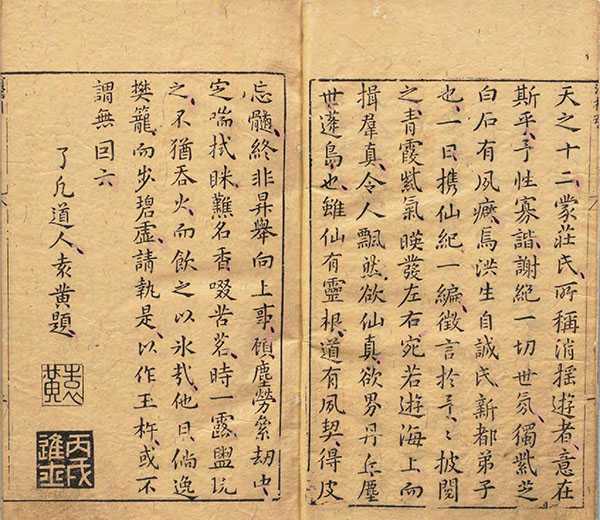 天之十二蒙莊氏所稱消搖遊者意在
斯乎予性寡諧謝絕一切世氛獨紫芝
白石有夙癖焉洪生自誠氏新都弟子
也一日携仙紀一編徵言於予〻披閱
之青霞紫氣暎發左右宛若遊海上而
揖羣真令人飄然欲仙真欲界丹丘塵
世蓬島也雖仙有靈根道有夙契得皮
忘髓終非昇舉向上事顧塵勞絫劫中
定喘拭眯爇名香啜苦茗時一露盥玩
之不猶吞火而飲之以冰哉他日倘逸
樊籠而步碧虛請執是以作玉杵或不
謂無囙云
了凡道人袁黄題
袁黄
丙戌進士